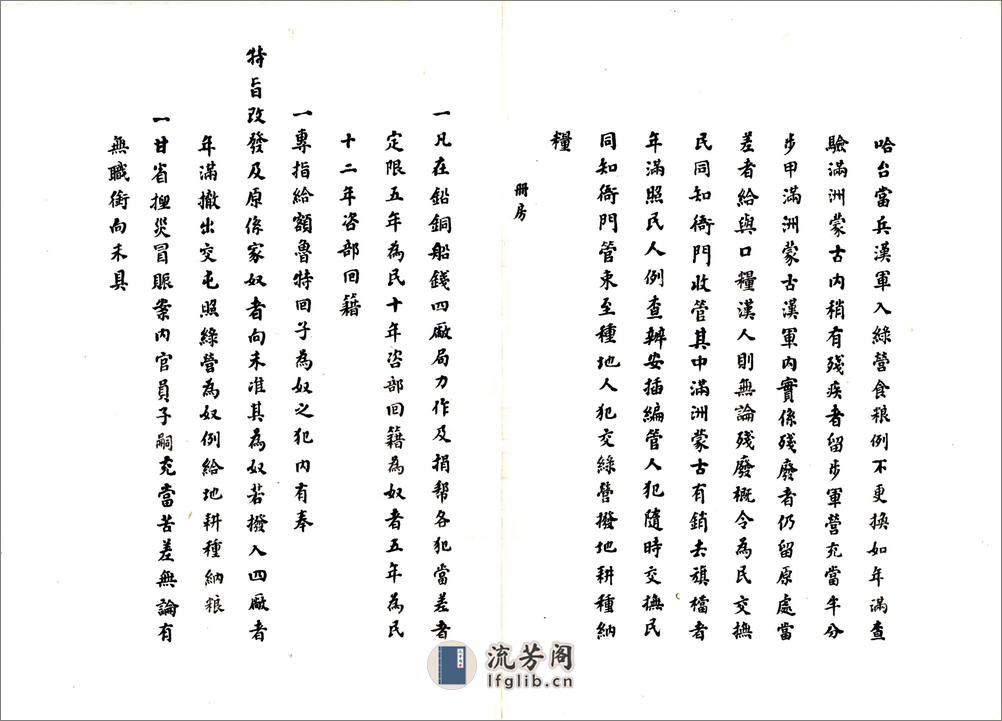 哈台當兵漢軍入綠營食粮例不更換如年滿查
驗滿洲蒙古內稍有殘疾者留步軍營充當半分
步甲滿洲蒙古漢軍內實係殘廢者仍留原處當
差者給與口糧漢人則無論殘廢概令為民交撫
民同知衙門收管其中滿洲蒙古有銷去旗檔者
年滿照民人例查辦安插編管人犯隨時交撫民
同知衙門管束至種地人犯交綠營撥地耕種納
糧
冊房
一凡在鉛銅船錢四廠局力作及捐幫各犯當差者
定限五年為民十年咨部回籍為奴者五年為民
十二年咨部回籍
一專指給額魯特回子為奴之犯內有奉
特旨改發及原係家奴者向未准其為奴若撥入四廠者
年滿撤出交屯照綠營為奴例給地耕種納粮
一甘省捏災冒賑案內官員子嗣充當苦差無論有
無職銜向未具
流芳阁
lfglib.cn